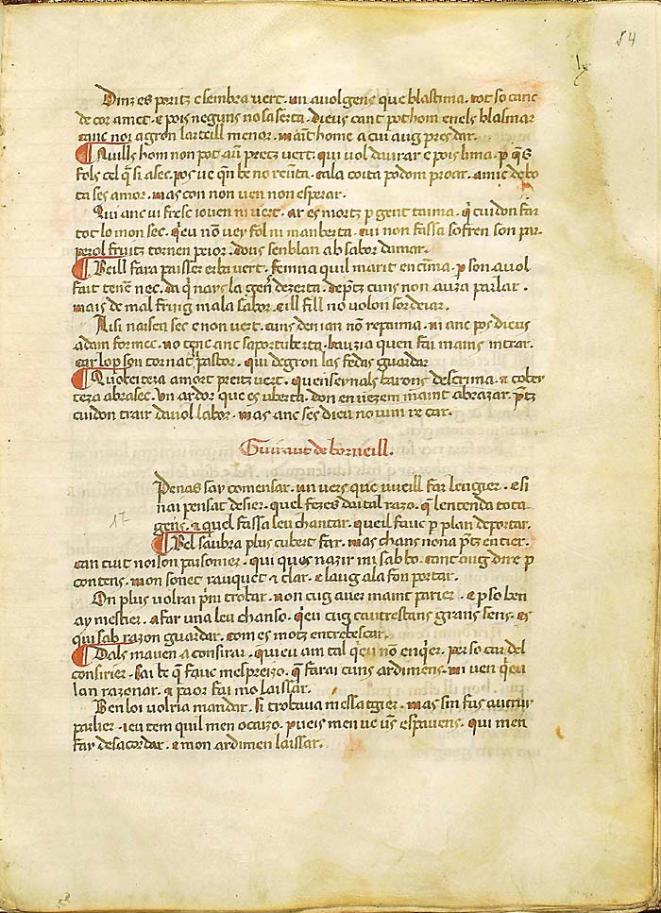 54
Dinz es poritz e sembra vert. un auol gens que blastima. tot so canc
de cor amet. e pois neguns nosa serta. dieus cant pot hom enels blasmar
canc noi agron larteill menor. maint home a cui aug pres dar.
Auills hom non pot auer pretz vert. qui vol daurar e pois lima. p q̄s
fols cel q̄ si asec. pos ve q̄n be no revita. cala coita podom proar. amic de bo
ta ses amor. mas con non ven non esperar.
Qui anc vi fresc ioven ni vert. ar es mortz p gent taima. q̄ cuidon far
tot lo mon sec. q̄eu nō vey fol ni manberta. cui non fassa sofren son par.
perol fruitz tornen peior. dous senblan ab sabor damar.
Beill fara paisser erba vert. femna quil marit encima. p son auol
fait tenē nec. da q̄ nars la gen dezerta. de p̄tz cuns non auza parlar.
mais de mal fruig mala sabor. eill fill no volon sordeiar.
Aisi naisen sec e non vert. cuns den ian nō reprima. ni anc pos dieus
adam formec. no tenc anc sa porta uberta. bauzia quen fai mains intrar.
car lop son tornat pastor. qui degron las fedas guardar
Cuobeiteza amort preitz vert. quenseynals barons descrima. a cobey
teza abrasec. un ardor que es uberta. don en vezem maint abrazar. p̄tz
cuidon trair dauol labor. mas anc ses dieu no vim re car.
Guiraut de borneill.
17
Penas say comensar. un vers que vueill far leugier. e si
nai pensat desier. quel fezes daital razo. q̄ lentenda tota
gens. a quel fassa leu chantar. queil fauc p plan deportar.
Bel saubra plus cubert far. mas chans nona p̄tz entier.
can tuit noison parsonier. qui quos nazir mi sab bo. cant aug dire p
contens. mon sonet rauquet a clar. e laug ala fon portar.
On plus volrai p̄m trobar. non cug auer maint parier. e p so ben
ay mestier. a far una leu chanso. q̄eu cug cautrestans grans sens. es
qui sab razon guardar. com es motz entrebescar.
Dals maven a consirar. quieu am tal q̄eu nō enq̄er. per so car del
consirier. sai be q̄ fauc mespreizo. q̄ farai cuns ardimens. mi ven q̄eu
lan razonar. a paor fai mo laissar.
Ben loi volria mandar. si trobavia messatgier. mas sin fas autrui
parlier. ieu tem quil men ocaizo. pueis men ve us espavens. qui men
fay desacordar. a mon ardimen laissar.